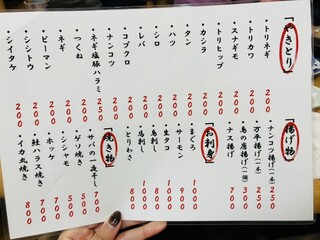 やきとり
・トリネギ 200
・トリカワ 200
・スナギモ 200
・トリヒップ 200
・カシラ 200
・タン 200
・ハツ 200
・シロ 200
・レバ 200
・コブクロ 200
・ナンコツ 200
・ネギ塩豚ハラミ 250
・つくね 200
・ネギ 200
・ピーマン 200
・シシトウ 200
・シイタケ 200
揚げ物
・ナンコツ揚げ(一本) 250
・万平揚げ(一本) 250
・鳥の唐揚げ(一個)
・ナス揚げ 700
お刺身
・まぐろ
・サーモン
・生タコ
・馬刺し
・鳥刺し
・とりわさ 800
焼き物
・サバの一夜干し 700
・ゲソ焼き 500
・シシャモ 500
・ホッケ
・鮭ハラス焼き 700
・イカ丸焼き 800